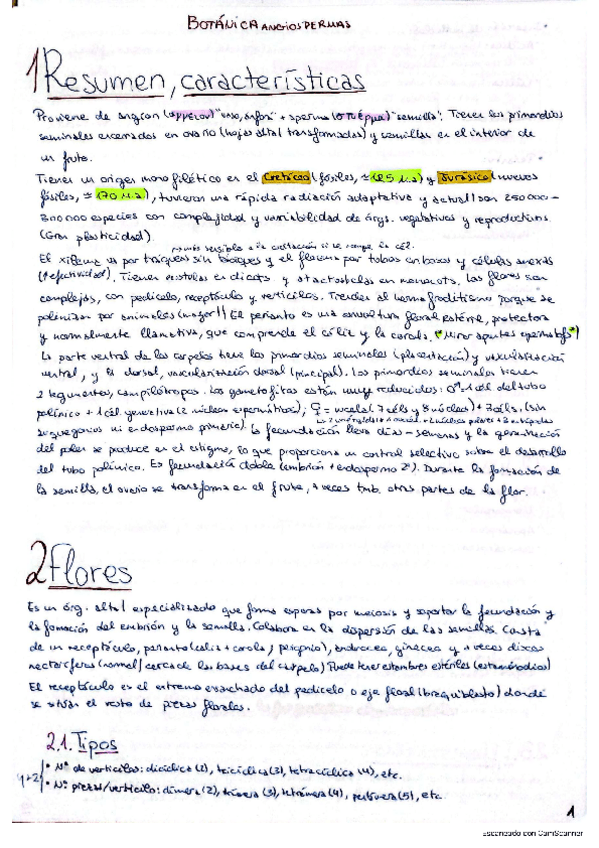 BOTÁNICA ANGIOSPERMAS
1 Resumen, características
Proviene de angion (αγγειον) "vaso, ánfora" + sperma (σπέρμα) "semilla". Tienen los primordios
seminales encerrados en ovario (hojas altal transformadas) y semillas en el interior de
un fruto.
Tienen un origen monofilético en el Cretáceo (fósiles, ≈ 125 M.a) y Jurásico (nuevos
fósiles, ≈ 170 M.a), tuvieron una rápida radiación adaptativa y actual/ son 250000-
300000 especies con complejidad y variabilidad de órgs. vegetativos y reproductivos
(Gran plasticidad).
más sensible a la cavitación si se rompe la cél.
El xilema va por tráqueas sin tabiques y el floema por tubos cribosos y células anexas
(↑efectividad). Tienen eustelas en dicots. y atactostelas en monocots. Las flores son
complejas, con pedicelo, receptáculo y verticilos. Tienden al hermafroditismo porque se
polinizan por animales (mayor/) El perianto es una envoltura floral estéril, protectora
y normalmente llamativa, que comprende el cáliz y la corola. *Mirar apuntes
La parte ventral de los carpelos tiene los primordios seminales (placentación) y vascularización
ventral, y la dorsal, vascularización dorsal (principal). Los primordios seminales tienen
2 tegumentos, campilótropos. Los gametofitos están muy reducidos: ♂=1 cél del tubo
polínico + 1 cél. generativa (2 núcleos espermáticos); ♀ = nucela (7 céls y 8 núcleos) + 7 céls. (sin
arquegonios ni endospermo primario). La fecundación lleva días - semanas y la germinación
del polen se produce en el estigma, lo que proporciona un control selectivo sobre el desarrollo
del tubo polínico. Es fecundación doble (embrión + endospermo 2º). Durante la formación de
la semilla, el ovario se transforma en el fruto, + veces tmb. otras partes de la flor.
2 Flores
Es un órg. altal especializado que forma esporas por meiosis y soporta la fecundación y
la formación del embrión y la semilla. Colabora en la dispersión de las semillas. Consta
de un receptáculo, perianto (caliz + corola / perigonio), androceo, gineceo y + veces discos
nectaríferos (normal/ cerca de las bases del carpelo) Puede tener estambres estériles (estaminodios)
El receptáculo es el extremo ensanchado del pedicelo o eje floral (braquiblasto) donde
se sitúan el resto de piezas florales.
2.1. Tipos
• Nº de verticilos: dicíclica (2), tricíclica (3), tetracíclica (4), etc.
• Nº piezas/verticilo: dímera (2), trímera (3), tetrámera (4), pentámera (5), etc.
1
Escaneado con CamScanner